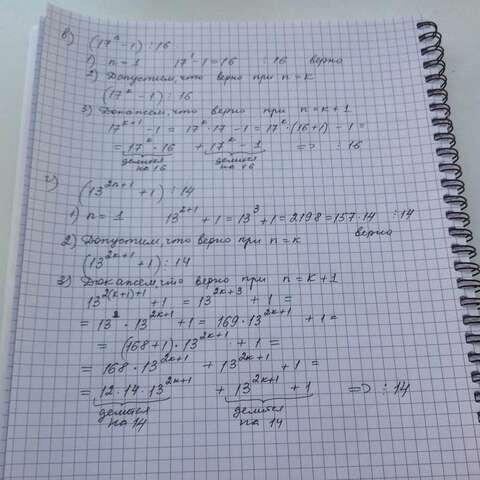 в)
(17ⁿ - 1) ⋮ 16
1) n = 1 17¹ - 1 = 16 ⋮ 16 верно
2) Допустим, что верно при n = k
(17ᵏ - 1) ⋮ 16
3) Докажем, что верно при n = k + 1
17ᵏ⁺¹ - 1 = 17ᵏ · 17 - 1 = 17ᵏ · (16+1) - 1 =
= 17ᵏ · 16 + 17ᵏ - 1 => ⋮ 16
делится на 16 делится на 16
г)
(13²ⁿ⁺¹ + 1) ⋮ 14
1) n = 1 13²⁺¹ + 1 = 13³ + 1 = 2198 = 157 · 14 ⋮ 14
верно
2) Допустим, что верно при n = k
(13²ᵏ⁺¹ + 1) ⋮ 14
3) Докажем, что верно при n = k + 1
13²⁽ᵏ⁺¹⁾⁺¹ + 1 = 13²ᵏ⁺³ + 1 =
= 13² · 13²ᵏ⁺¹ + 1 = 169 · 13²ᵏ⁺¹ + 1 =
= (168+1) · 13²ᵏ⁺¹ + 1 =
= 168 · 13²ᵏ⁺¹ + 13²ᵏ⁺¹ + 1 =
= 12 · 14 · 13²ᵏ⁺¹ + 13²ᵏ⁺¹ + 1 => ⋮ 14
делится на 14 делится на 14